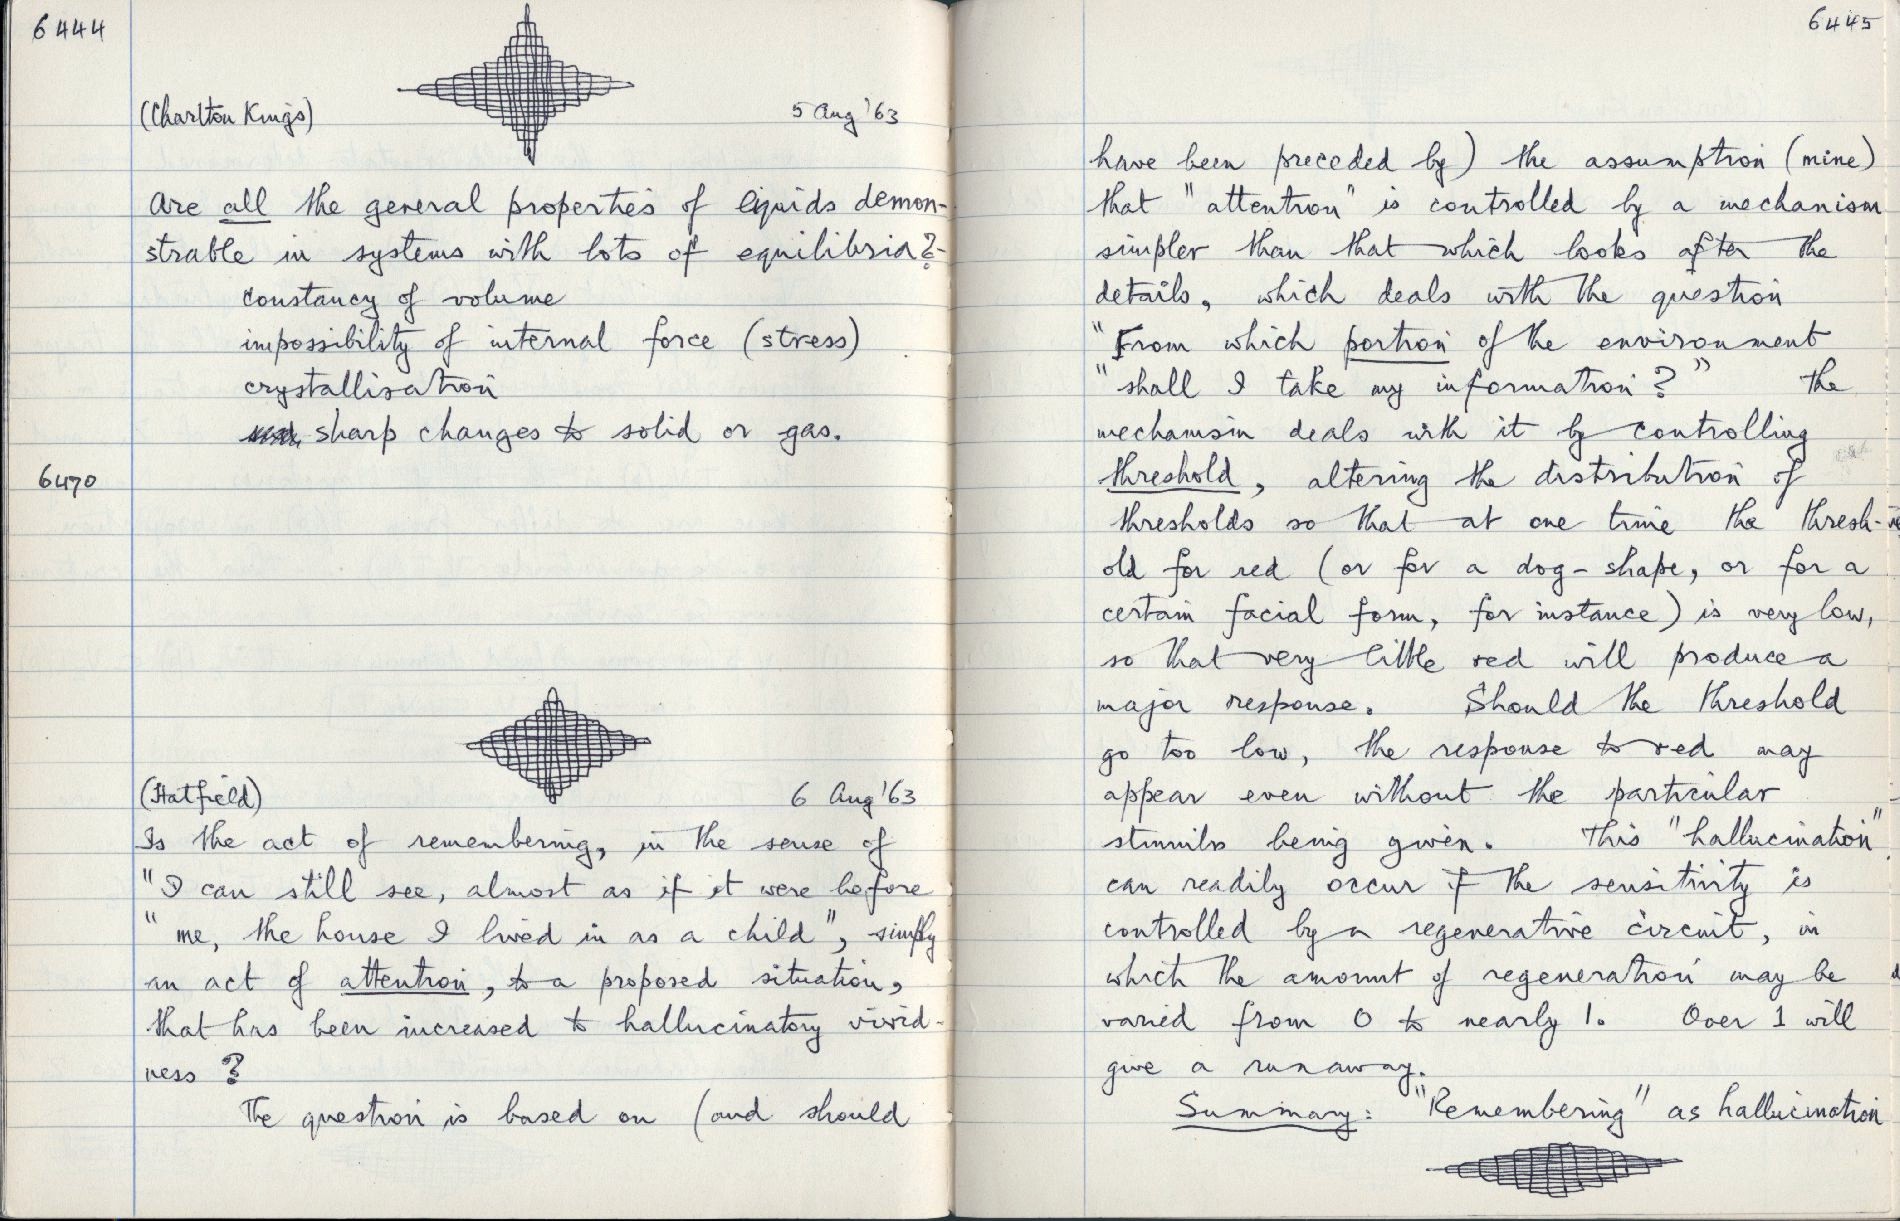 6444
(Charlton Kings) 5 Aug '63
Are all the general properties of liquids demon-
strable in systems with lots of equilibria?-
constancy of volume
impossibility of internal force (stress)
crystallisation
sharp changes to solid or gas.
6470
(Hatfield) 6 Aug '63
Is the act of remembering, in the sense of
"I can still see, almost as if it were before
"me, the house I lived in as a child", simply
an act of attention, to a proposed situation,
that has been increased to hallucinatory vivid-
ness?
The question is based on (and should
6445
have been preceded by) the assumption (mine)
that "attention" is controlled by a mechanism
simpler than that which looks after the
details, which deals with the question
"From which portion of the environment
"shall I take my information?" The
mechanism deals with it by controlling
threshold, altering the distribution of
thresholds so that at one time the thresh-
old for red (or for a dog-shape, or for a
certain facial form, for instance) is very low,
so that very little red will produce a
major response. Should the threshold
go too low, the response to red may
appear even without the particular
stimulus being given. This "hallucination"
can readily occur if the sensitivity is
controlled by a regenerative circuit, in
which the amount of regeneration may be
varied from 0 to nearly 1. Over 1 will
give a runaway.
Summary: "Remembering" as hallucination